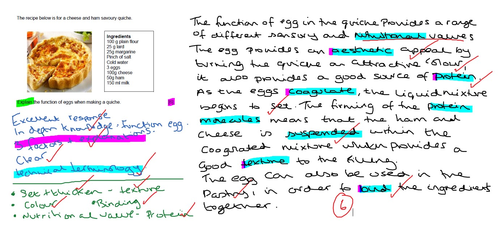 The recipe below is for a cheese and ham savoury quiche.
Ingredients
100 g plain flour
25 g lard
25g margarine
Pinch of salt
Cold water
3 eggs
100g cheese
50g ham
150 ml milk
Explain the function of eggs when making a quiche.
Excellent response
In depth knowledge - function egg.
Clear
technical terminology
• Set + thicken - texture
• Colour • Binding
• Nutritional value - Protein
The function of egg in the quiche provides a range
of different sensory and nutritional values
The egg provides an aesthetic appeal by
turning the quiche an attractive colour
it also provides a good source of protein.
As the eggs coagulate, the liquid mixture
begins to set. The firming of the protein
molecules means that the ham and
cheese is suspended within the
coagulated mixture which provides a
good texture to the filling.
The egg can also be used in the
Pastry, in order to bind the ingredient
together.
6